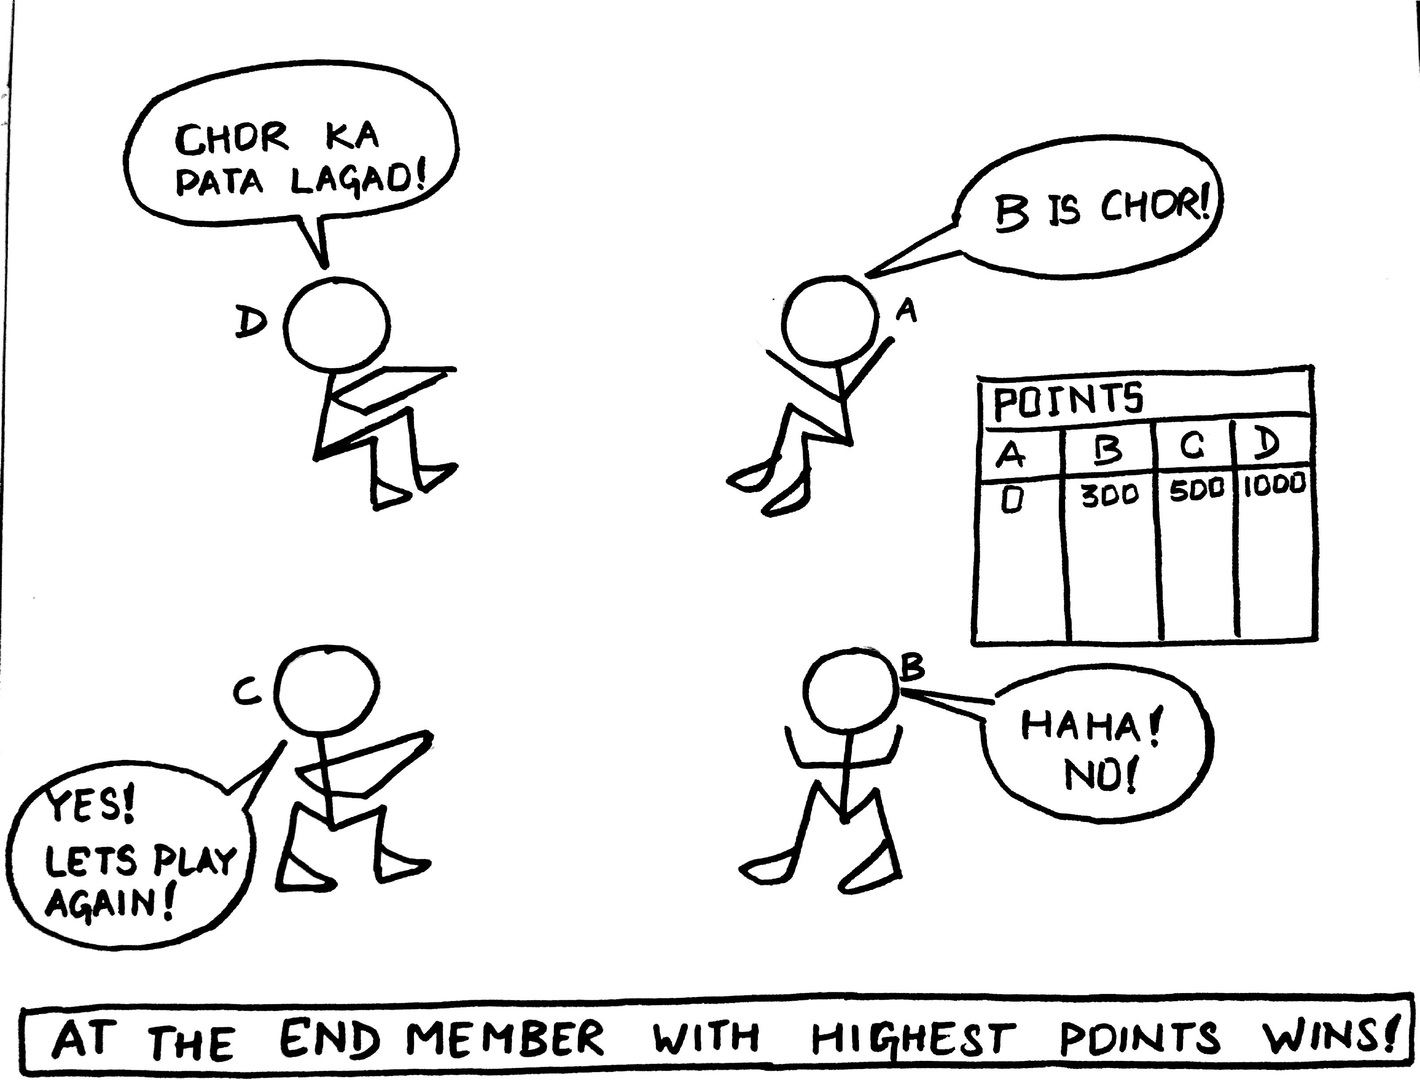 CHOR KA
PATA LAGAO!
B IS CHOR!
D
A
POINTS
A B C D
0 300 500 1000
C
B
HAHA!
NO!
YES!
LETS PLAY
AGAIN!
AT THE END MEMBER WITH HIGHEST POINTS WINS!